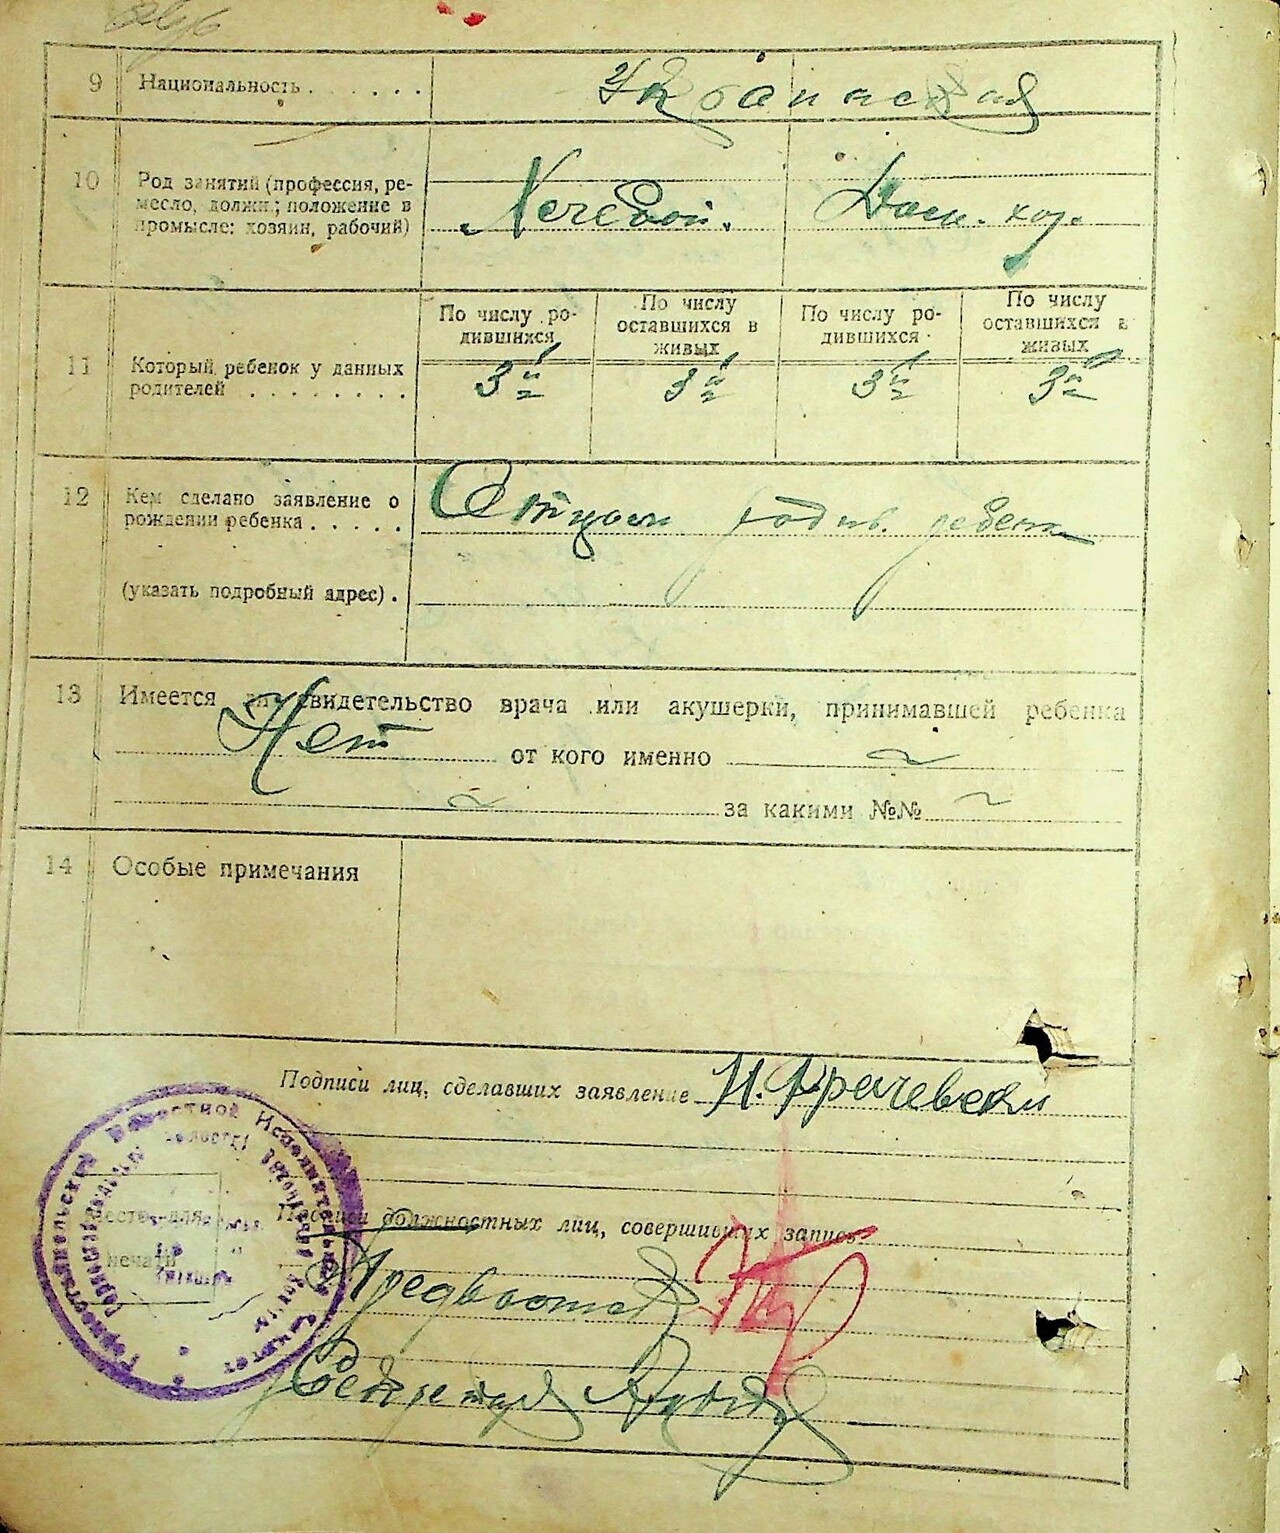 9 Национальность . . . . . . Украинская
10 Род занятий (профессия, ре-
месло, должн.; положение в
промысле: хозяин, рабочий)
Дом. хоз.
По числу ро-
дившихся
По числу
оставшихся в
живых
По числу ро-
дившихся
По числу
оставшихся в
живых
11 Который ребенок у данных
родителей . . . . . . . .
3й 3й 3й 3й
12 Кем сделано заявление о
рождении ребенка . . . . .
Отцом родив. ребенк
(указать подробный адрес) .
13 Имеется ли свидетельство врача или акушерки, принимавшей ребенка
Нет от кого именно ~
~ за какими №№ ~
14 Особые примечания
Подписи лиц, сделавших заявление
Подписи должностных лиц, совершивших запись
Место для
печати
Волостной Исполнительный Комитет
Секретарь